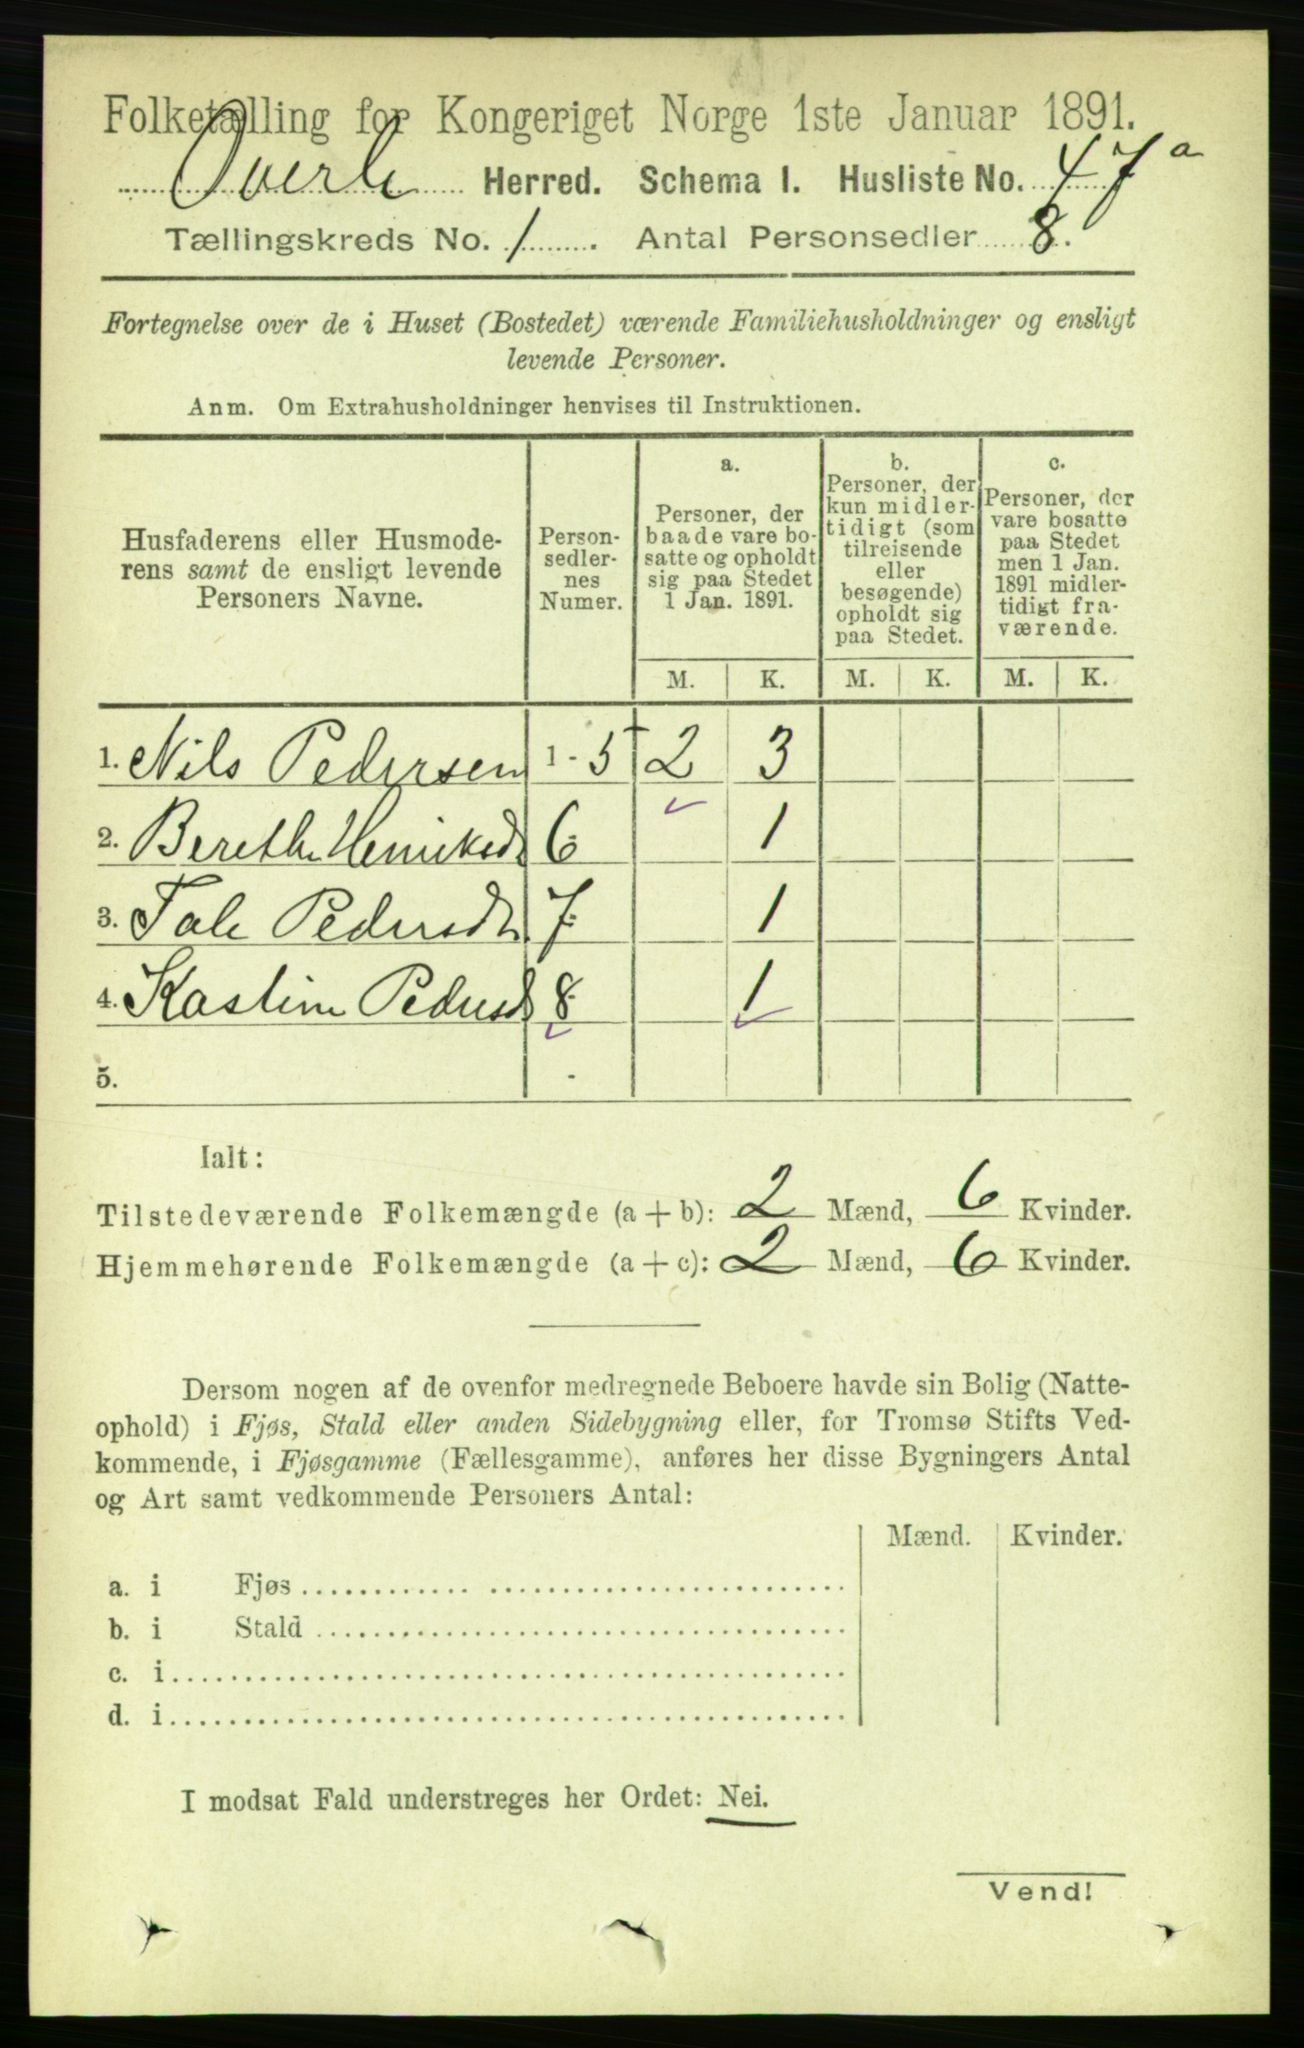 Folketælling for Kongeriget Norge 1ste Januar 1891.
Herred. Schema I. Husliste No. 47 a
Tællingskreds No. 1. Antal Personsedler 8.
Fortegnelse over de i Huset (Bostedet) værende Familiehusholdninger og ensligt
levende Personer.
Anm. Om Extrahusholdninger henvises til Instruktionen.
Husfaderens eller Husmode-
rens samt de ensligt levende
Personers Navne.
Person-
sedler-
nes
Numer.
a.
Personer, der
baade vare bo-
satte og opholdt
sig paa Stedet
1 Jan. 1891.
b.
Personer, der
kun midler-
tidigt (som
tilreisende
eller
besøgende)
opholdt sig
paa Stedet.
c.
Personer, der
vare bosatte
paa Stedet
men 1 Jan.
1891 midler-
tidigt fra-
værende.
M. K. M. K. M. K.
1. Nils Pedersen 1 - 5 2 3
2. Berethe Henriksd 6 1
3. Tale Pedersdt 7 1
4. Pedersd 8 1
5.
Ialt:
Tilstedeværende Folkemængde (a + b): 2 Mænd, 6 Kvinder.
Hjemmehørende Folkemængde (a + c): 2 Mænd, 6 Kvinder.
Dersom nogen af de ovenfor medregnede Beboere havde sin Bolig (Natte-
ophold) i Fjøs, Stald eller anden Sidebygning eller, for Tromsø Stifts Ved-
kommende, i Fjøsgamme (Fællesgamme), anføres her disse Bygningers Antal
og Art samt vedkommende Personers Antal:
Mænd. Kvinder.
a. i Fjøs
b. i Stald
c. i
d. i
I modsat Fald understreges her Ordet: Nei.
Vend!